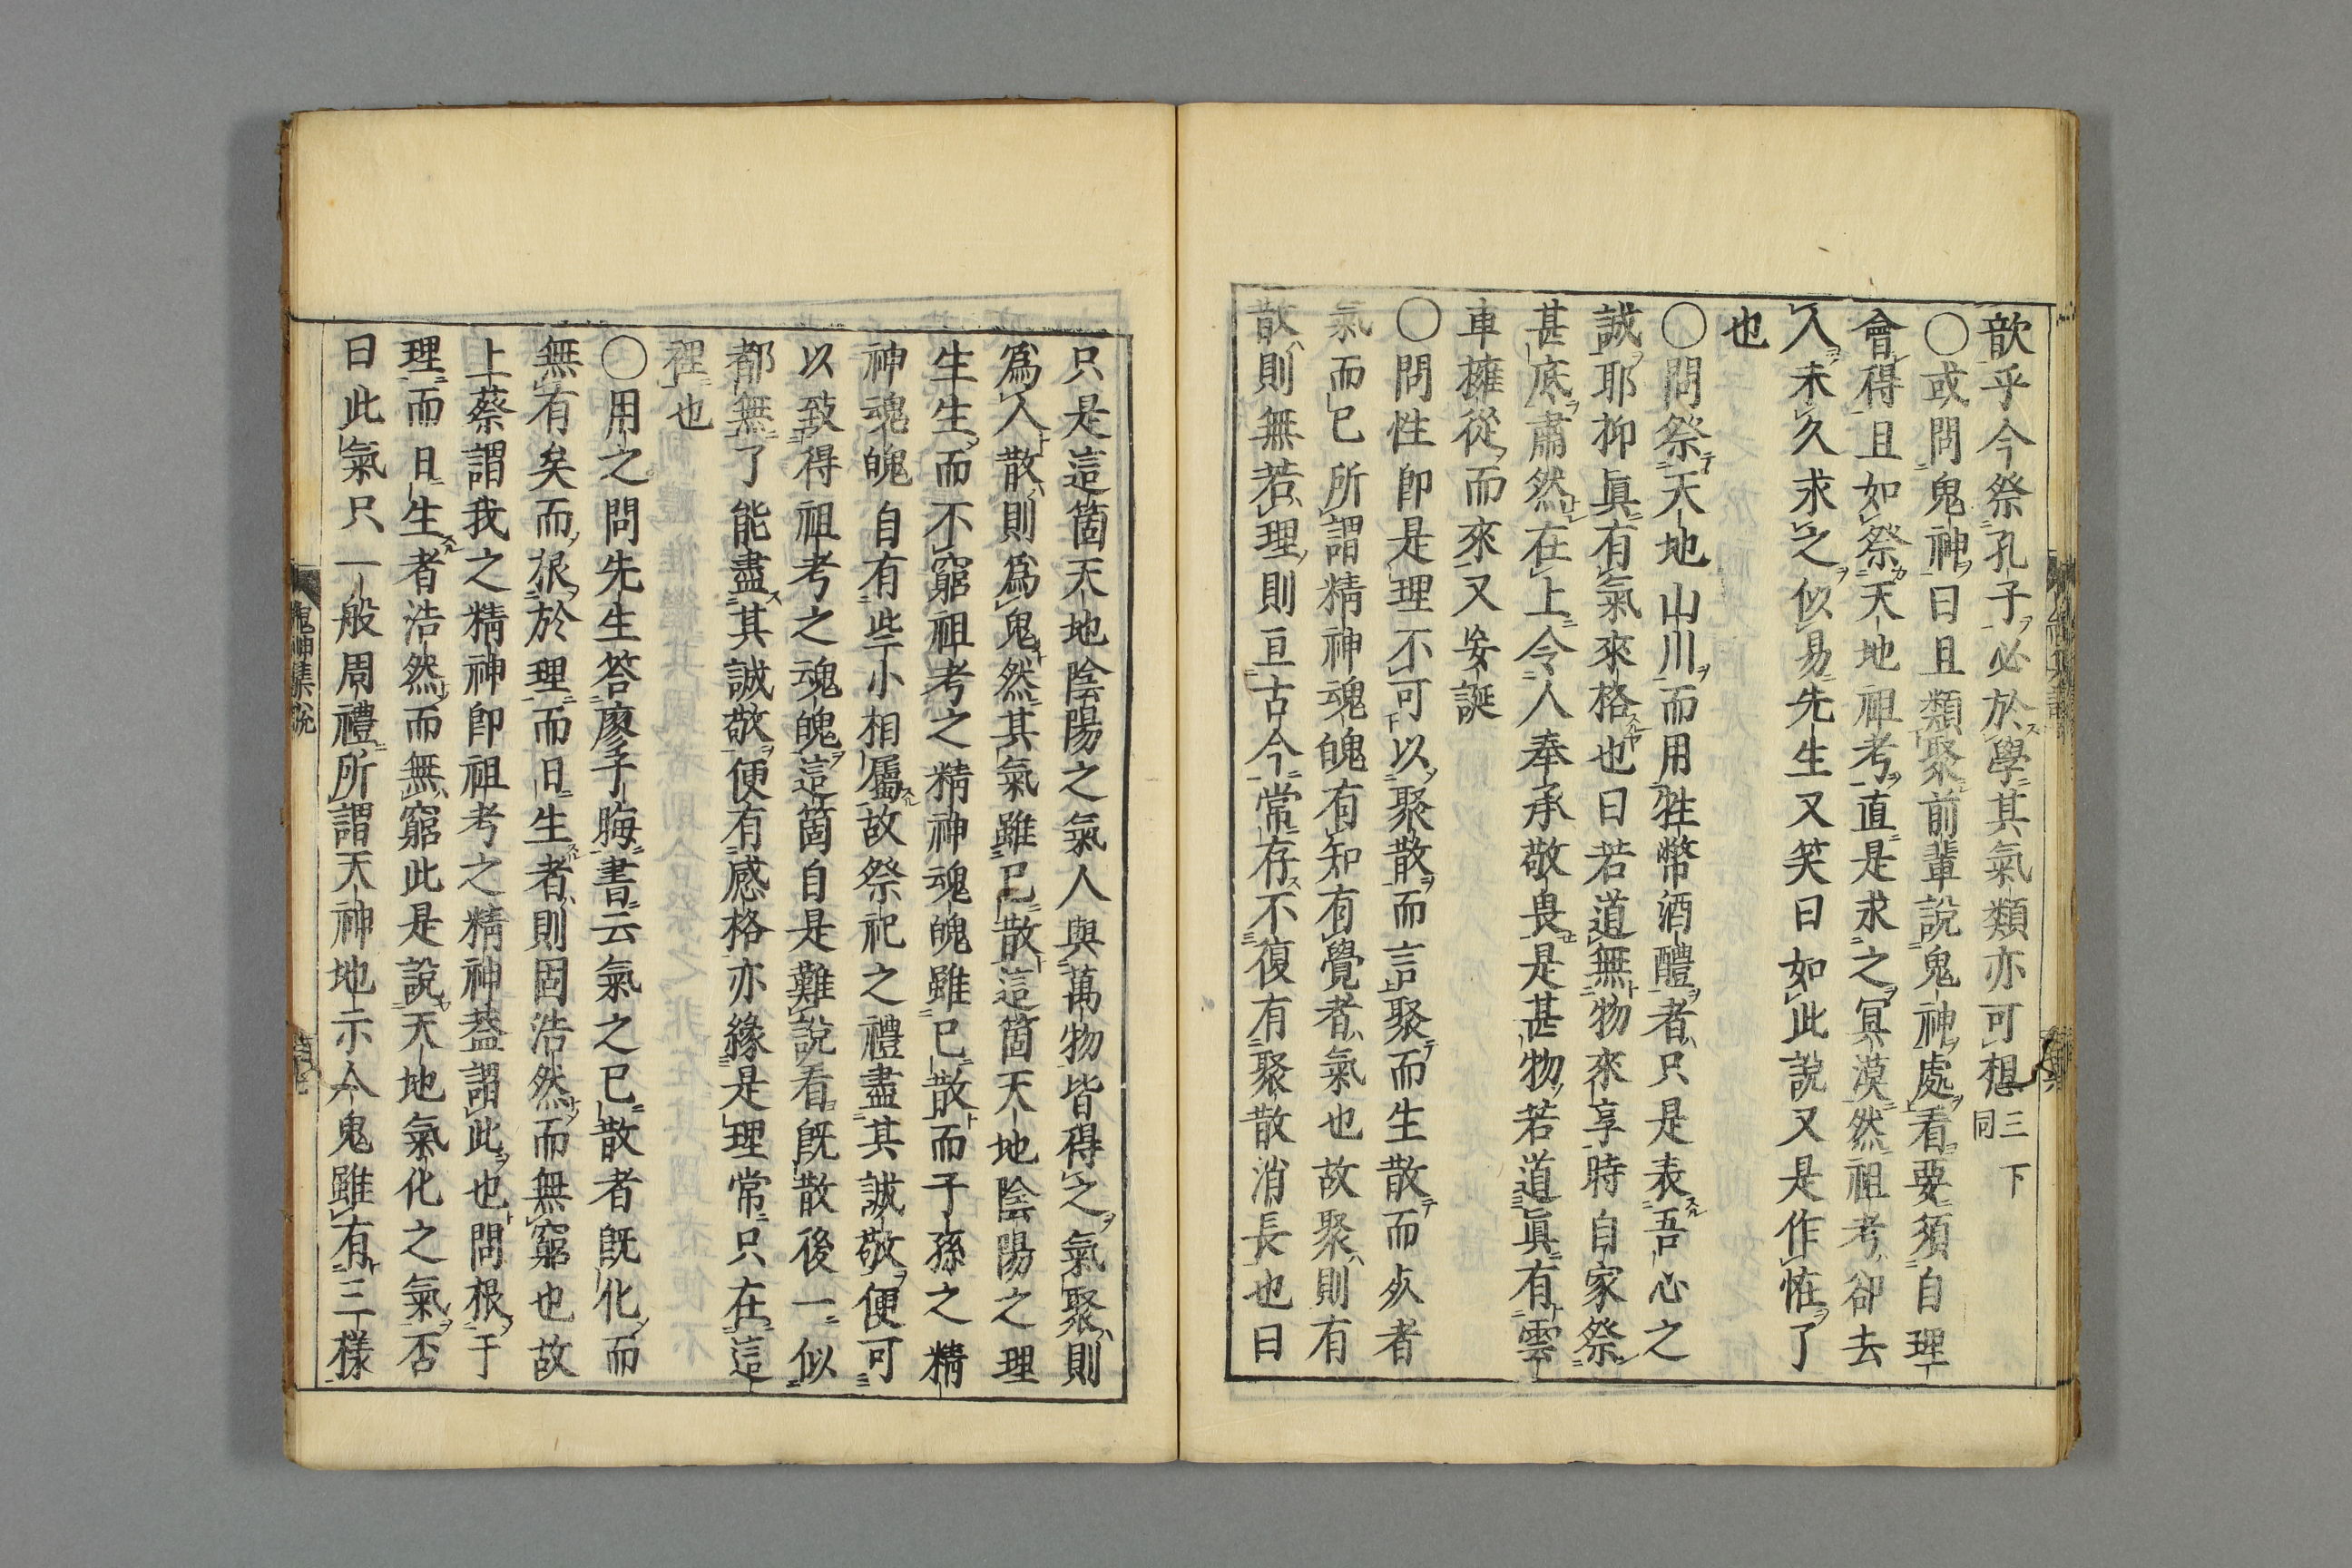 歆乎今祭孔子必於學其氣類亦可想三下同
〇或問鬼神曰且類聚前輩說鬼神處看要須自理
會得且如祭天地祖考直是求之冥漠然祖考卻去
人未久求之似易先生又笑曰如此說又是作恠了
也
〇問祭天地山川而用牲幣酒醴者只是表吾心之
誠耶抑眞有氣來格也曰若道無物來享時自家祭
甚底肅然在上令人奉承敬畏是甚物若道眞有雲
車擁從而來又妄誕
〇問性卽是理不可以聚散而言聚而生散而死者
氣而已所謂精神魂魄有知有覺者氣也故聚則有
散則無若理則亘古今常存不復有聚散消長也曰
只是這箇天地陰陽之氣人與萬物皆得之氣聚則
爲人散則爲鬼然其氣雖已散這箇天地陰陽之理
生生而不窮祖考之精神魂魄雖已散而子孫之精
神魂魄自有些小相屬故祭祀之禮盡其誠敬便可
以致得祖考之魂魄這箇自是難說看旣散後一似
都無了能盡其誠敬便有感格亦緣是理常只在這
裡也
〇用之問先生答廖子晦書云氣之已散者旣化而
無有矣而根於理而日生者則固浩然而無窮也故
上蔡謂我之精神卽祖考之精神葢謂此也問根于
理而日生者浩然而無窮此是說天地氣化之氣否
曰此氣只一般周禮所謂天神地示人鬼雖有三樣
鬼神集說